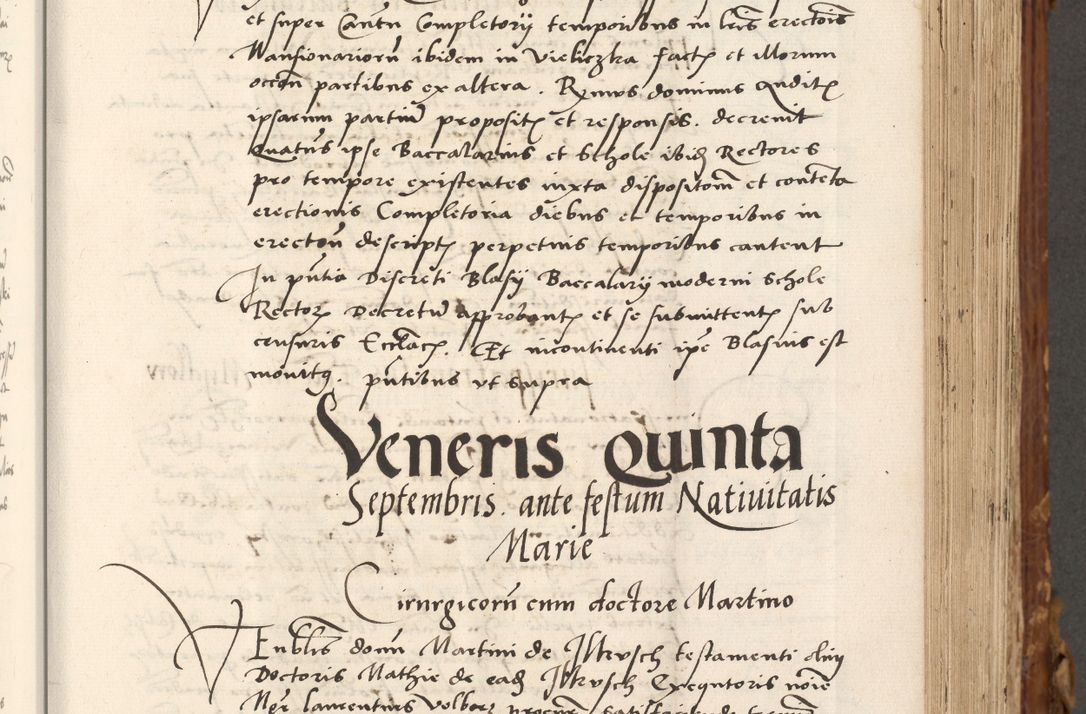 et super Cantu Completorij temporibus in lris erectiois
Mansionariorum ibidem in Vieliczka fact et illorum
occon partibus ex altera. Rmus dominus Audit
ipsarum partium proposit et responsis. decrevit
Quatus ipse Baccalarius et Schole ibid Rectores
pro tempore existentes iuxta dispositom et contenta
erectionis Completoria diebus et temporibus in
erectou descript perpetuis temporibus cantent
In pntia Discreti Blasij Baccalarij moderni Schole
Rector Decretum approbant et se submittent sub
censuris Ecclac. Et incontinenti ipe Blasius est
monitq. pntibus vt supra
Veneris quinta
Septembris. ante festum Natiuitatis
Marie
Cirurgicoru cum doctore Martino
VEnblis domi Martini de Ilkusch testamenti olim
Doctoris Mathie de ead Ilkusch Exequtoris noie
Ner laurentius Volbor